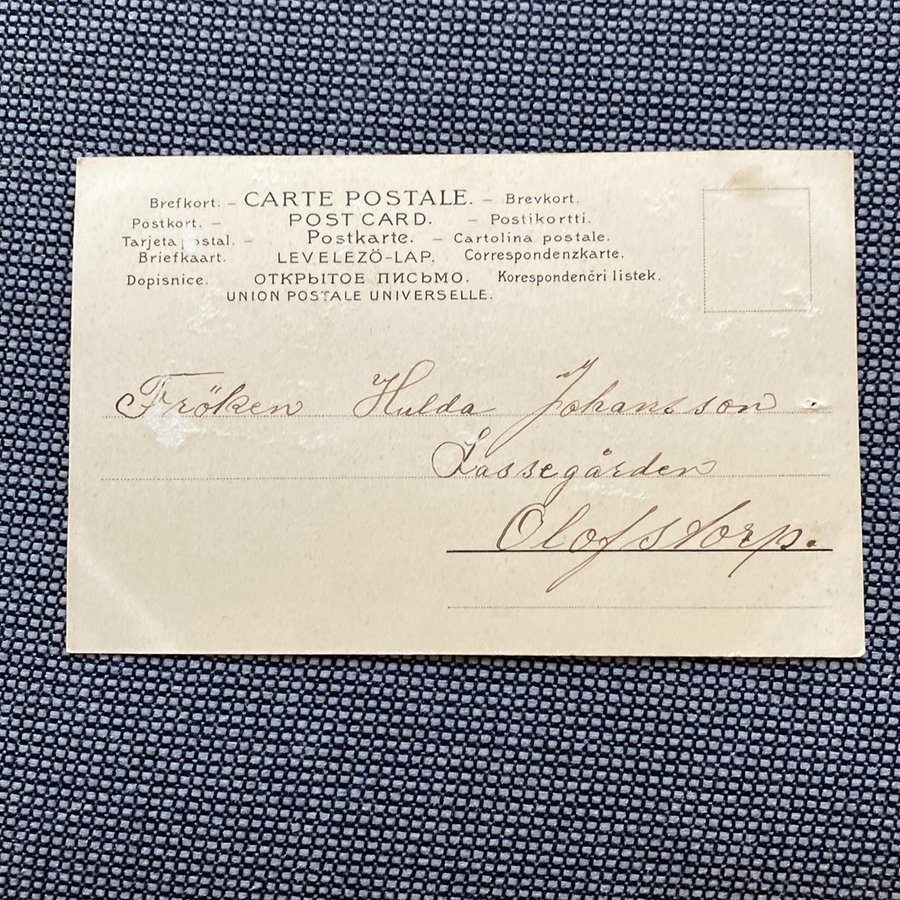 Brefkort. – CARTE POSTALE. – Brevkort.
Postkort. – POST CARD. – Postikortti.
Tarjeta postal. – Postkarte. – Cartolina postale.
Briefkaart. LEVELEZÖ-LAP. Correspondenzkarte.
Dopisnice. ОТКРЫТОЕ ПИСЬМО. Korespondenčri listek.
UNION POSTALE UNIVERSELLE.
Fröken Hulda Johansson
Lassegården
Olofstorp.